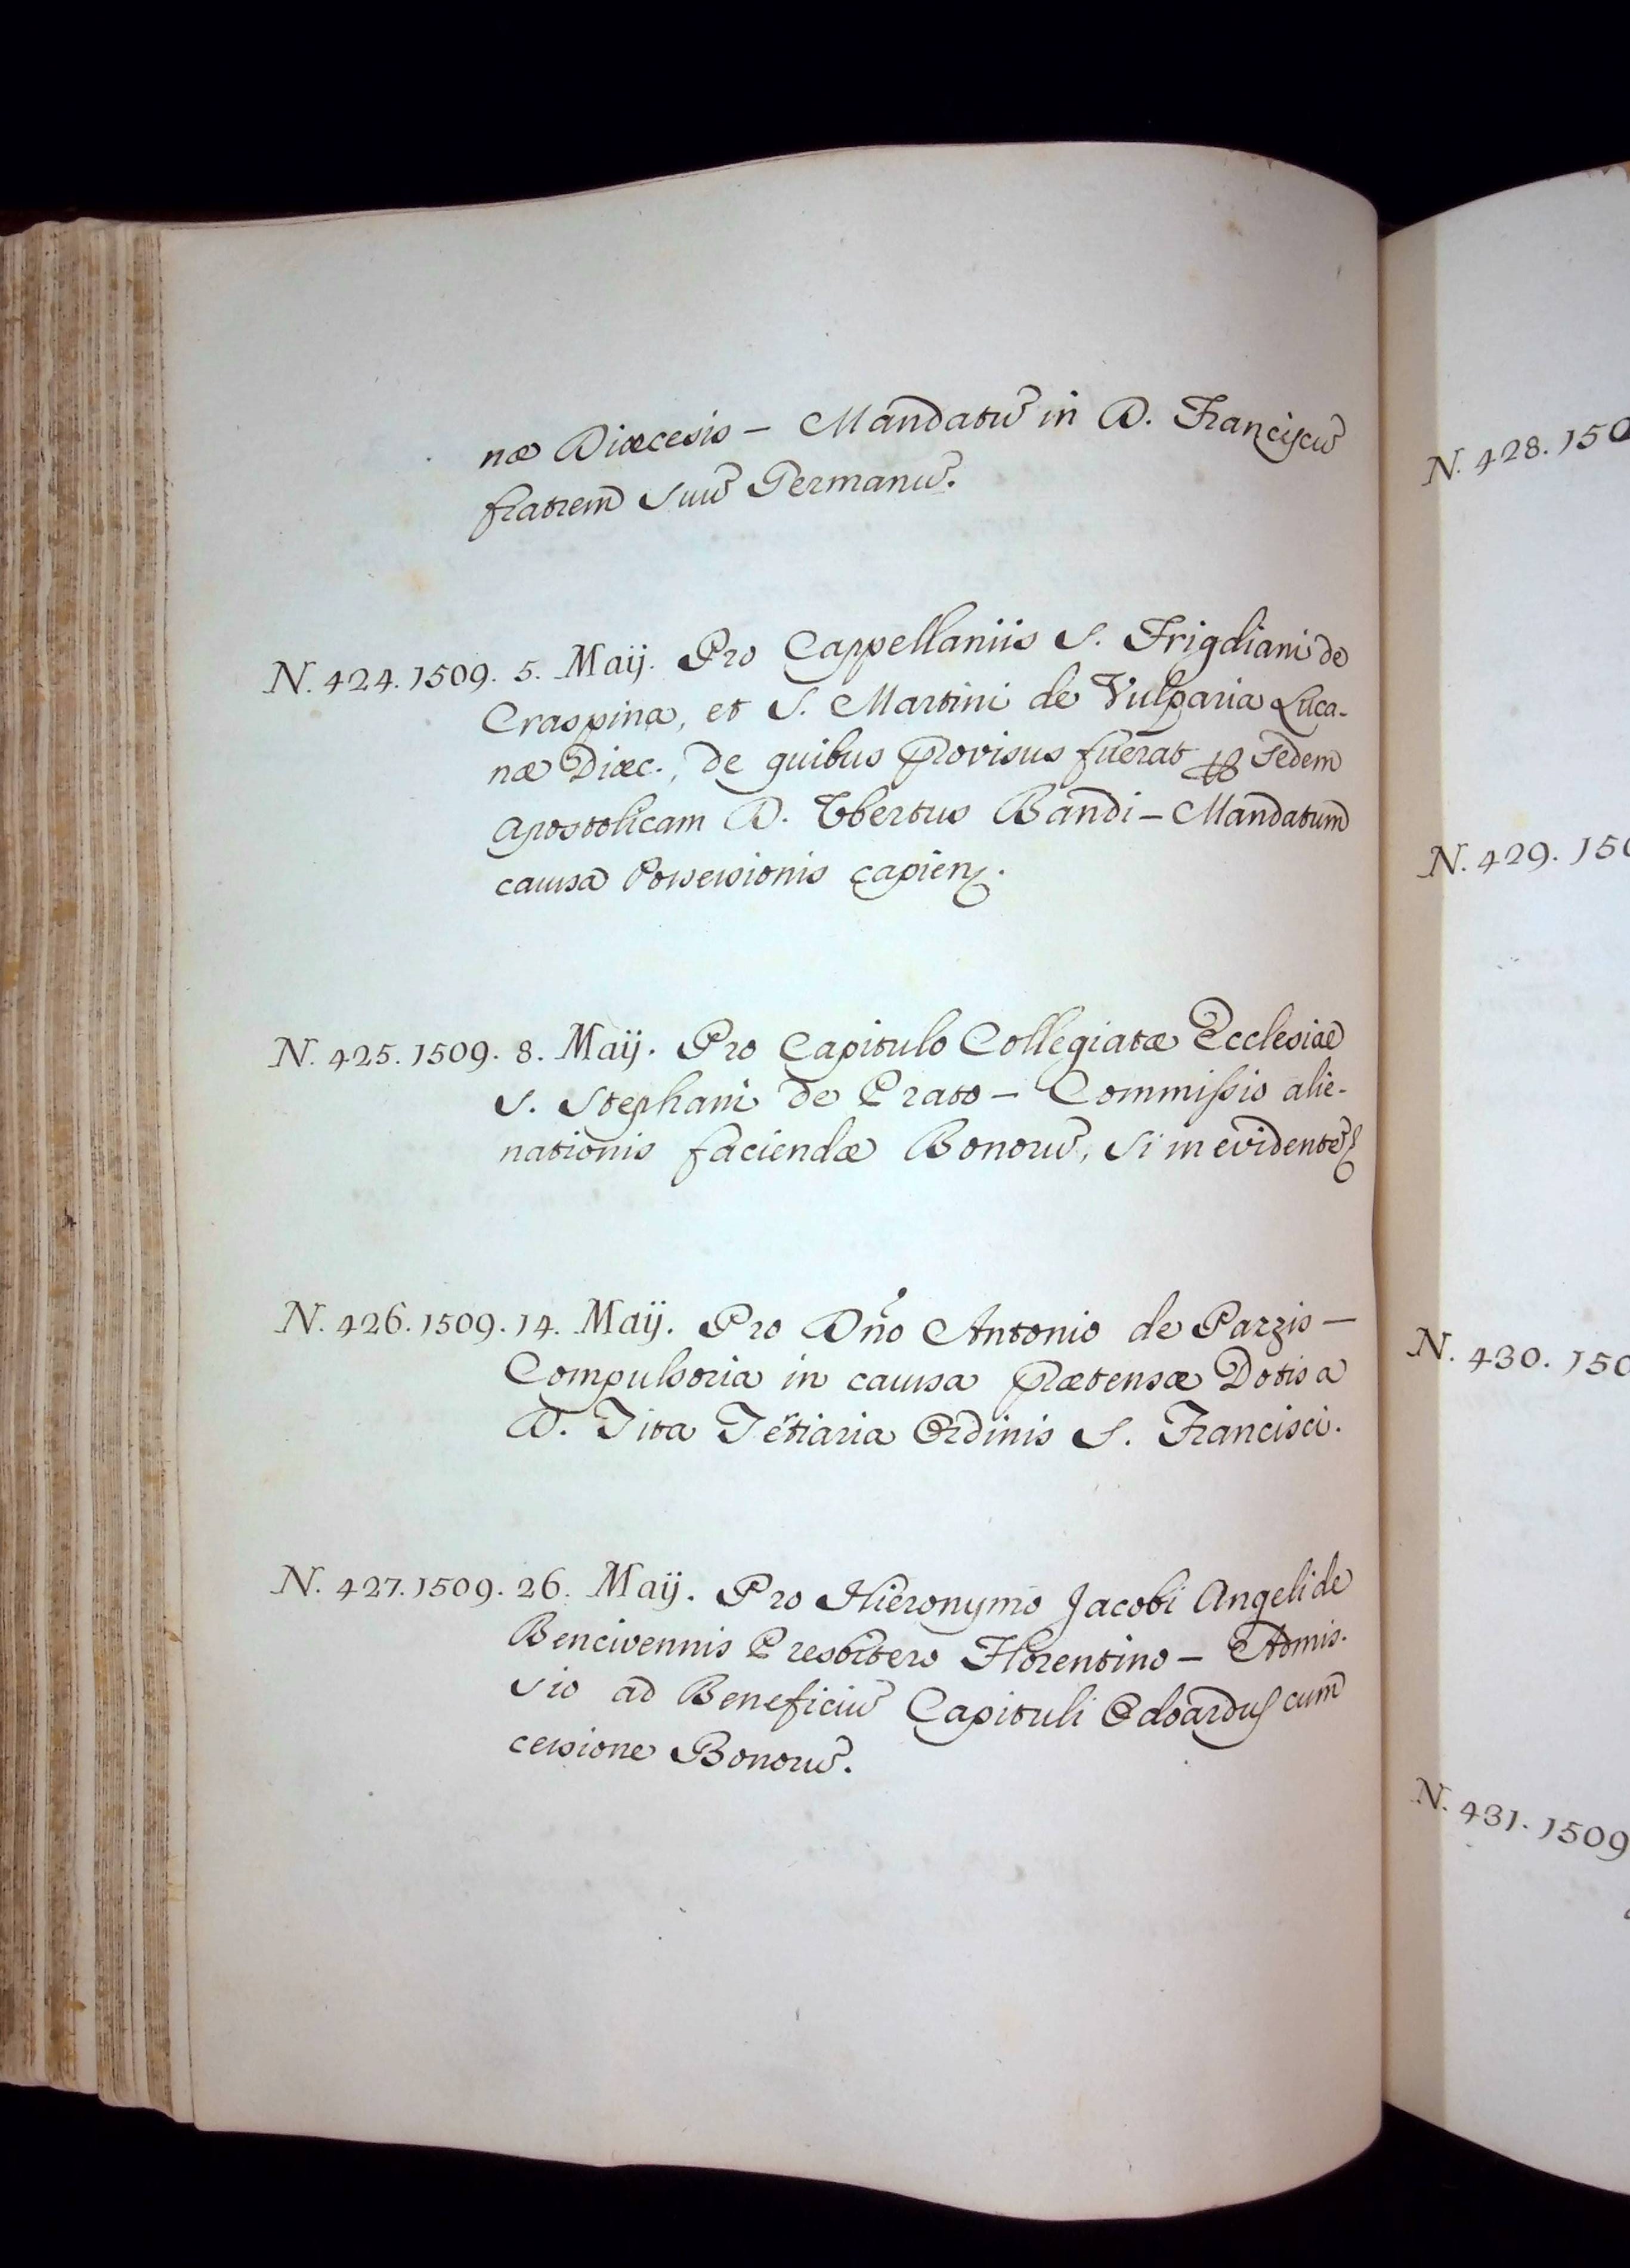 næ Diæcesis – Mandatũ in D. Franciscũ
fratrem suũ Germanũ.
N. 424. 1509. 5. Maij. Pro Cappellaniis S. Frigdiani de
Craspina, et S. Martini de Vulparia Luca-
næ Diæc., de quibus provisus fuerat ꝑ Sedem
Apostolicam D. Ubertus Bandi – Mandatum
causa Possessionis capien.
N. 425. 1509. 8. Maij. Pro Capitulo Collegiatæ Ecclesiæ
S. Stephani de Prato – Commissio alie-
nationis faciendæ Bonorũ, si in evidentẽ
N. 426. 1509. 14. Maij. Pro Dño Antonio de Pazzis –
Compulsoria in causa prætensæ Dotis a
D. Tita Tẽtiaria Ordinis S. Francisci.
N. 427. 1509. 26. Maij. Pro Hieronymo Jacobi Angeli de
Bencivennis Presbitero Florentino – Admis-
sio ad Beneficiũ Capituli Odoardus cum
cessione Bonorũ.
N. 428. 150
N. 429. 150
N. 430. 150
N. 431. 1509